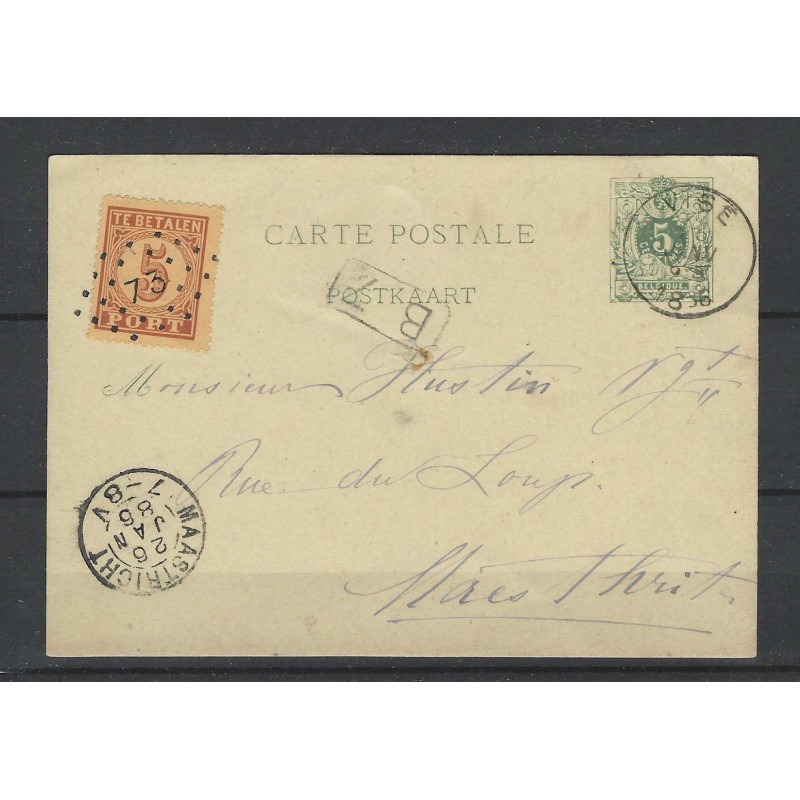 TE BETALEN
5
PORT
75
CARTE POSTALE
POSTKAART
5
BELGIQUE
VISÉ
Monsieur Hustin Vgt
Rue du Loup.
Maesthrit
MAASTRICHT
7-8V